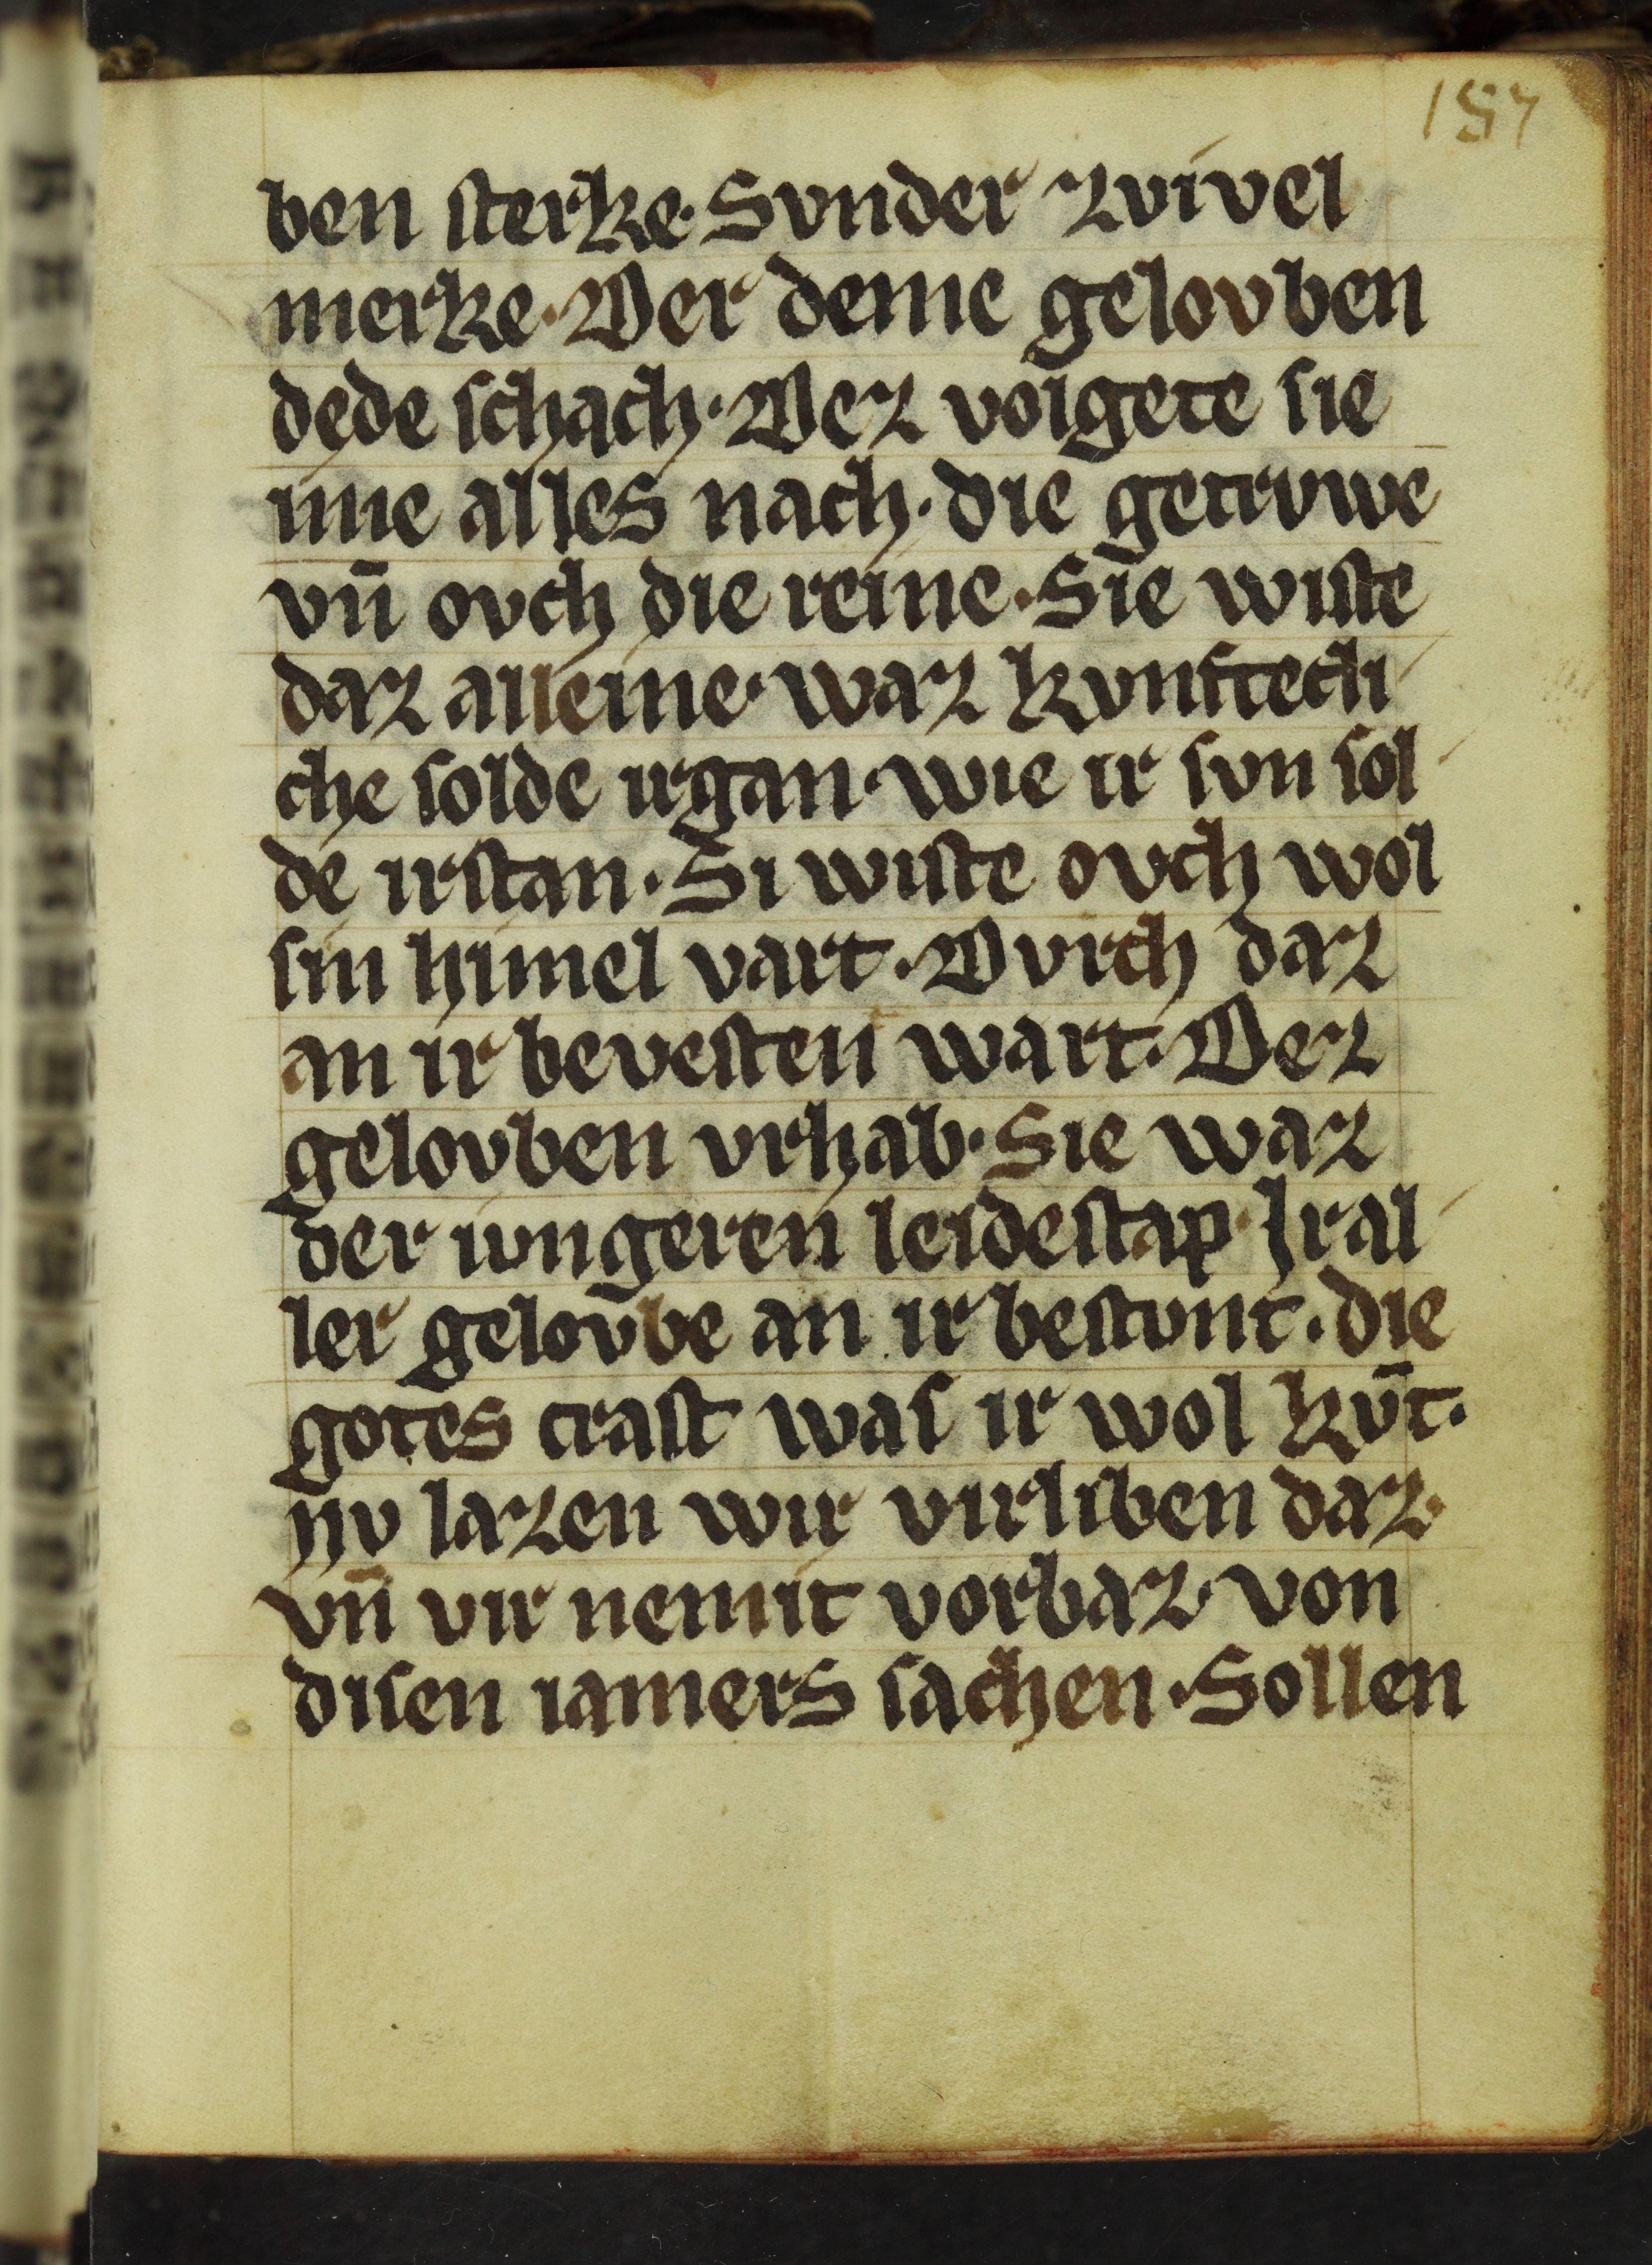 157
ben sterke· Svnder zvivel
merke· Der deme gelovben
dede schach· Dez volgete sie
ime alles nach· die getrvwe
vn̄ ovch die reine· Sie wiste
daz alleine· waz kvnftecli
che solde irgan· wie ir svn sol
de irstan· Si wiste ovch wol
sin himel vart· Dvrch daz
an ir bevesten wart· Dez
gelovben vrhab· Sie waz
der ivngeren leidestap· Ir al
ler gelovbe an ir bestvnt· die
gotes craft was ir wol kv̄t·
nv lazen wir virliben daz·
vn̄ vir nemit vorbaz· von
disen iamers sachen· Sollen